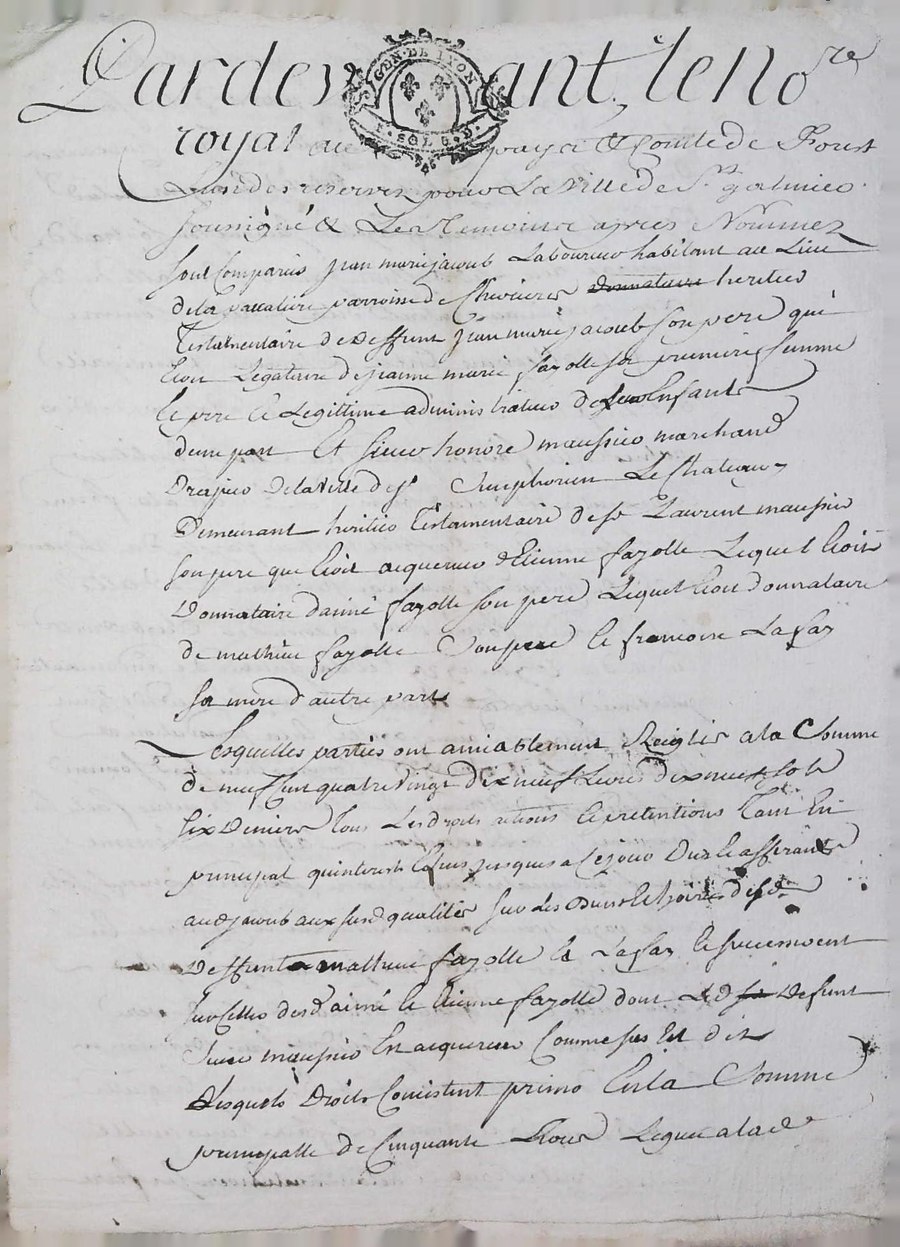 Pardevant, le No.re
GEN. DE LYON
SOLS. D.
royal au pays & Comté de Forest
L'un des reservez pour La Ville de St galmier
soussigné & Les Temoins apres Nommez
sont Comparus jean marie jacoub Laboureur habitant au Lieu
de la parroisse de Chevrieres donnataire heritier
Testamentaire de deffunt jean marie jacoub son pere qui
Etoit Legataire de jeanne marie fayolle sa premiere femme
le pere & Legittime administrateur de Leur Enfants
d'une part Et sieur honoré maussier marchand
Drapier De la Ville de St Chimphorien Le Chateau
Demeurant heritier Testamentaire de sr Laurent maussier
son pere que Etoit acquereur d'Etienne fayolle Lequel Etoit
Donnataire d'aimé fayolle son pere Lequel Etoit donnataire
de mathieu fayolle son pere & francoise Lafay
sa mere d'autre part
Lesquelles parties ont amiablement Reiglés a la Somme
de neuf Cent quatre Vingt dix neuf Livres dix neuf sols
six Deniers Tous Les droits actions & pretentions Tant En
principal qu'interest Echus jusques a Ce jour Dus & afferants
aud jacoub aux susd qualités sur Les Biens & hoirie desd
Deffunts mathieu fayolle & Lafay & successivement
sur Celles desd aimé & Etienne fayolle dont Led sr Defunt
sieur maussier En acquereur Comme sus Est dit
Lesquels Droits Consistent primo En La Somme
principalle de Cinquante Livres Leguée a lad